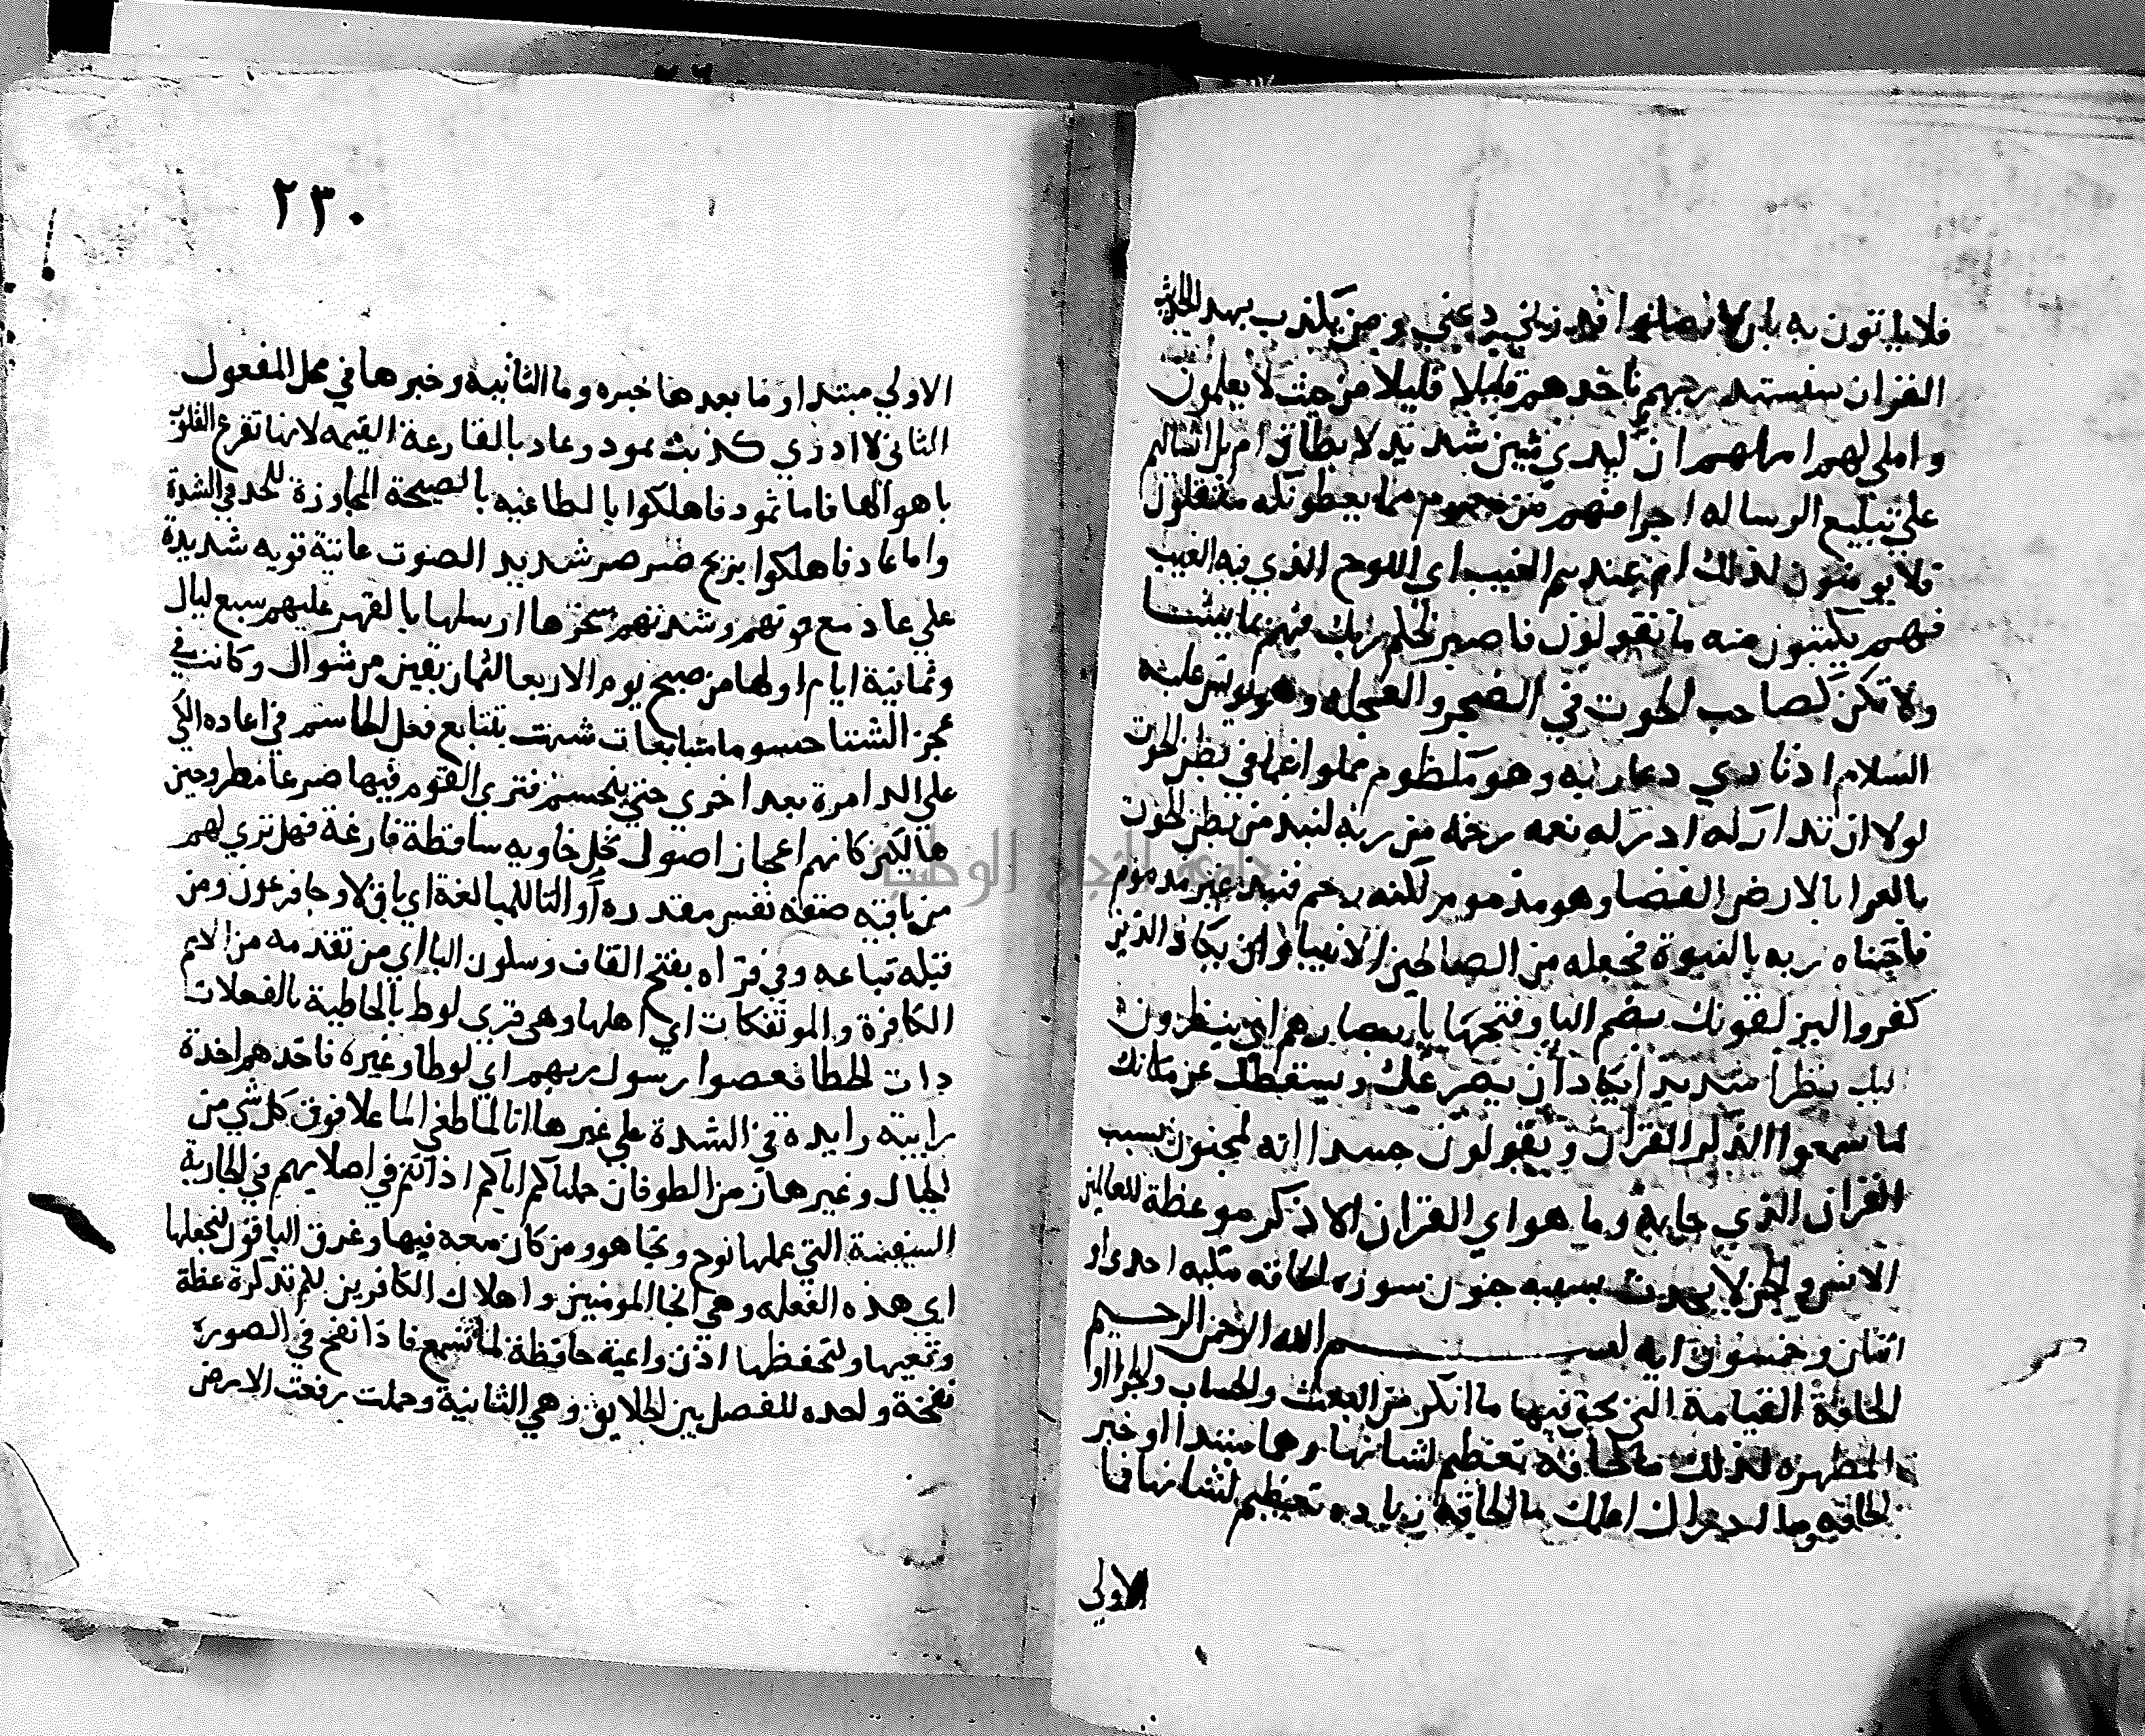 فلا ياتون به بان لا يصلوا فذرني دعني ومن يكذب بهذا الحديث
القران سنستدرجهم ناخذهم قليلا قليلا من حيث لا يعلمون
واملي لهم امهلهم ان كيدي متين شديد لا يطاق ام بل اتسالهم
على تبليغ الرسالة اجرا فهم من مغرم مما يعطونكه مثقلون
فلا يومنون لذلك ام عندهم الغيب اي اللوح الذي فيه الغيب
فهم يكتبون منه ما يقولون فاصبر لحكم ربك فيهم بما يشا
ولا تكن كصاحب الحوت في الضجر والعجلة وهو يونس عليه
السلام اذ نادي دعا ربه وهو مكظوم مملو اغما في بطن الحوت
لولا ان تداركه ادركه نعمه رحمه من ربه لنبذ من بطن الحوت
بالعرا بالارض الفضا وهو مذموم لكنه رحم فنبذ غير مذموم
فاجتباه ربه بالنبوة فجعله من الصالحين الانبيا وان يكاد الذين
كفروا ليزلقونك بضم اليا وفتحها بابصارهم اي ينظرون
اليك نظرا شديدا يكاد ان يصرعك ويسقطك عن مكانك
لما سمعوا الذكر القران ويقولون حسدا انه لمجنون بسبب
القران الذي جا به وما هو اي القران الا ذكر موعظة للعالمين
الانس والجن لا يحدث بسببه جنون سورة الحاقه مكيه احدي او
اثنان وخمسون ايه بسم الله الرحمن الرحيم
الحاقة القيامة التي يحق فيها ما انكر من البعث والحساب والجزا او
المظهرة لذلك ما الحاقة تعظيم لشانها وهما مبتدا او خبر
الحاقه وما ادراك اعلمك ما الحاقة زياده تعظيم لشانها فما
الاولي
٢٣٠
الاولي مبتدا وما بعدها خبره وما الثانية وخبرها في محل المفعول
الثاني لادري كذبت ثمود وعاد بالقارعة القيمه لانها تقرع القلوب
باهوالها فاما ثمود فاهلكوا بالطاغيه بالصيحة المجاوزة للحد في الشدة
واما عاد فاهلكوا بريح صرصر شديد الصوت عاتية قويه شديدة
علي عاد مع قوتهم وشدتهم سخرها ارسلها بالقهر عليهم سبع ليال
وثمانية ايام اولها من صبح يوم الاربعا لثمان بقين من شوال وكانت في
عجز الشتا حسوما متتابعات شبهت بتتابع فعل الحاسم في اعاده الكي
علي الدا مرة بعد اخري حتي ينحسم فتري القوم فيها صرعا مطروحين
هالكين كانهم اعجاز اصول نخل خاويه ساقطة فارغة فهل تري لهم
من باقيه صفة نفس مقدره او التا للمبالغة اي باق لا وجا فرعون ومن
قبله تباعه وفي قراه بفتح القاف وسكون البا اي من تقدمه من الامم
الكافرة والموتفكات اي اهلها وهي قري لوط بالخاطية بالفعلات
ذات الخطا فعصوا رسول ربهم اي لوطا وغيره فاخذهم اخذة
رابية زايدة في الشدة علي غيرها انا لما طغي الما علا فوق كل شي من
الجبال وغيرها زمن الطوفان حملناكم اباكم اذ انتم في اصلابهم في الجارية
السفينة التي عملها نوح ونجا هو ومن كان معه فيها وغرق الباقون لنجعلها
اي هذه الفعلة وهي انجا المومنين واهلاك الكافرين لكم تذكرة عظة
وتعيها ولتحفظها اذن واعية حافظة لما تسمع فاذا نفخ في الصور
نفخة واحده للفصل بين الخلايق وهي الثانية وحملت رفعت الارض
جامعة النجاح الوطنية